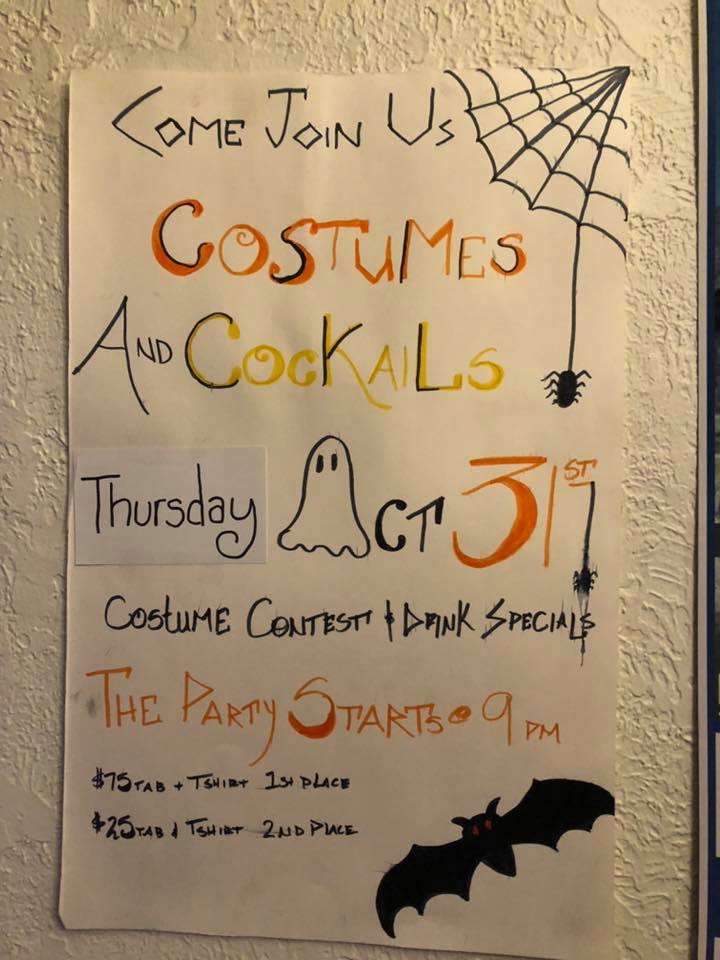 COME JOIN US
COSTUMES
AND COCKAILS
Thursday OCT 31ST
COSTUME CONTEST & DRINK SPECIALS
THE PARTY STARTS @ 9 PM
$75 TAB + TSHIRT 1ST PLACE
$25 TAB & TSHIRT 2ND PLACE